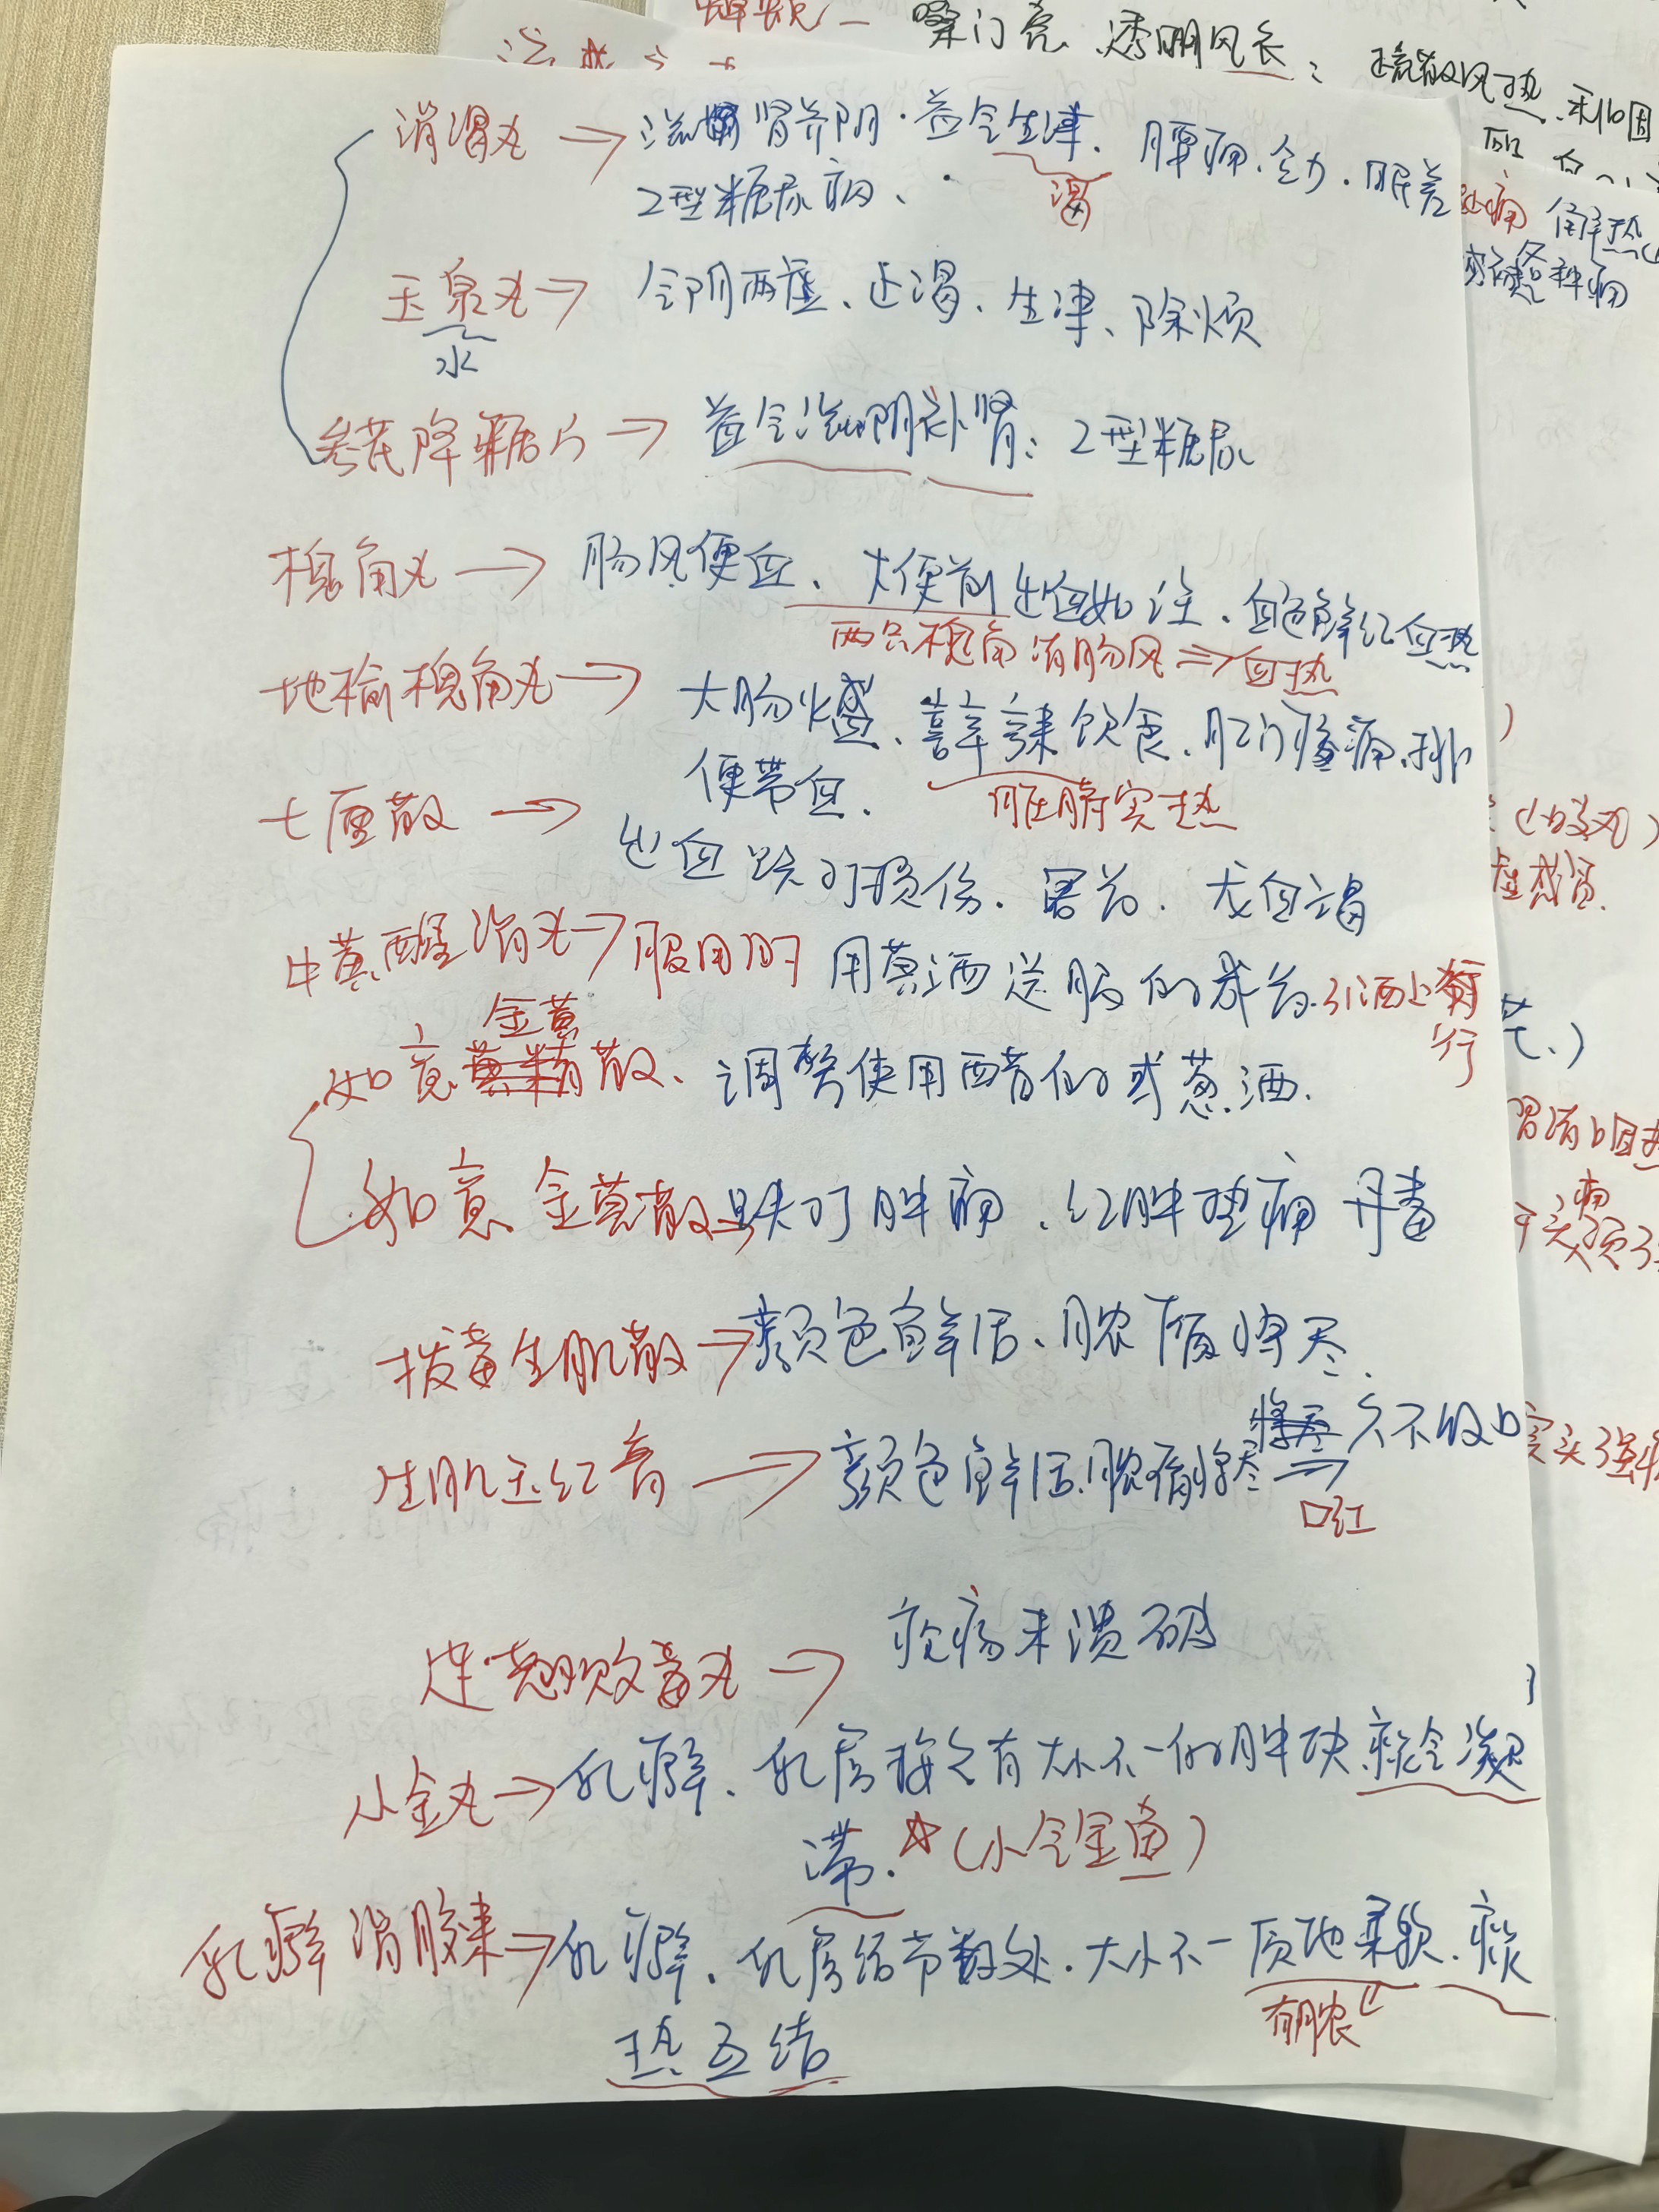 嗓门亮、透明风衣：疏散风热、利咽
消渴丸→滋肾养阴·益气生津、腰痛、乏力、眠差
2型糖尿病、
渴
解热
各种痛
玉泉丸→气阴两虚、止渴、生津、除烦
水
参芪降糖片→益气滋阴补肾：2型糖尿
槐角丸→肠风便血、大便前出血如注、血色鲜红血热
两只槐角清肠风⇒血热
地榆槐角丸→大肠火盛、喜辛辣饮食、肛门痛、排
便带血.
脏腑实热
七厘散→出血跌打损伤、含龙血竭
牛黄醒消丸→服用时用黄酒送服的成药.引酒上行
金黄
如意散、调敷使用醋的或葱酒.
如意金黄散跌打肿痛、红肿痛 丹毒
拔毒生肌散→颜色鲜活、脓腐将尽.
生肌玉红膏→颜色鲜活脓腐将尽→久不收口
口红
连翘败毒丸→疮疡未溃破
小金丸→乳癖、乳房按之有大小不一的肿块痰气凝
滞.☆(小气金鱼)
乳癖消胶囊→乳癖、乳房结节数处·大小不一质地柔软.痰
有脓
热互结